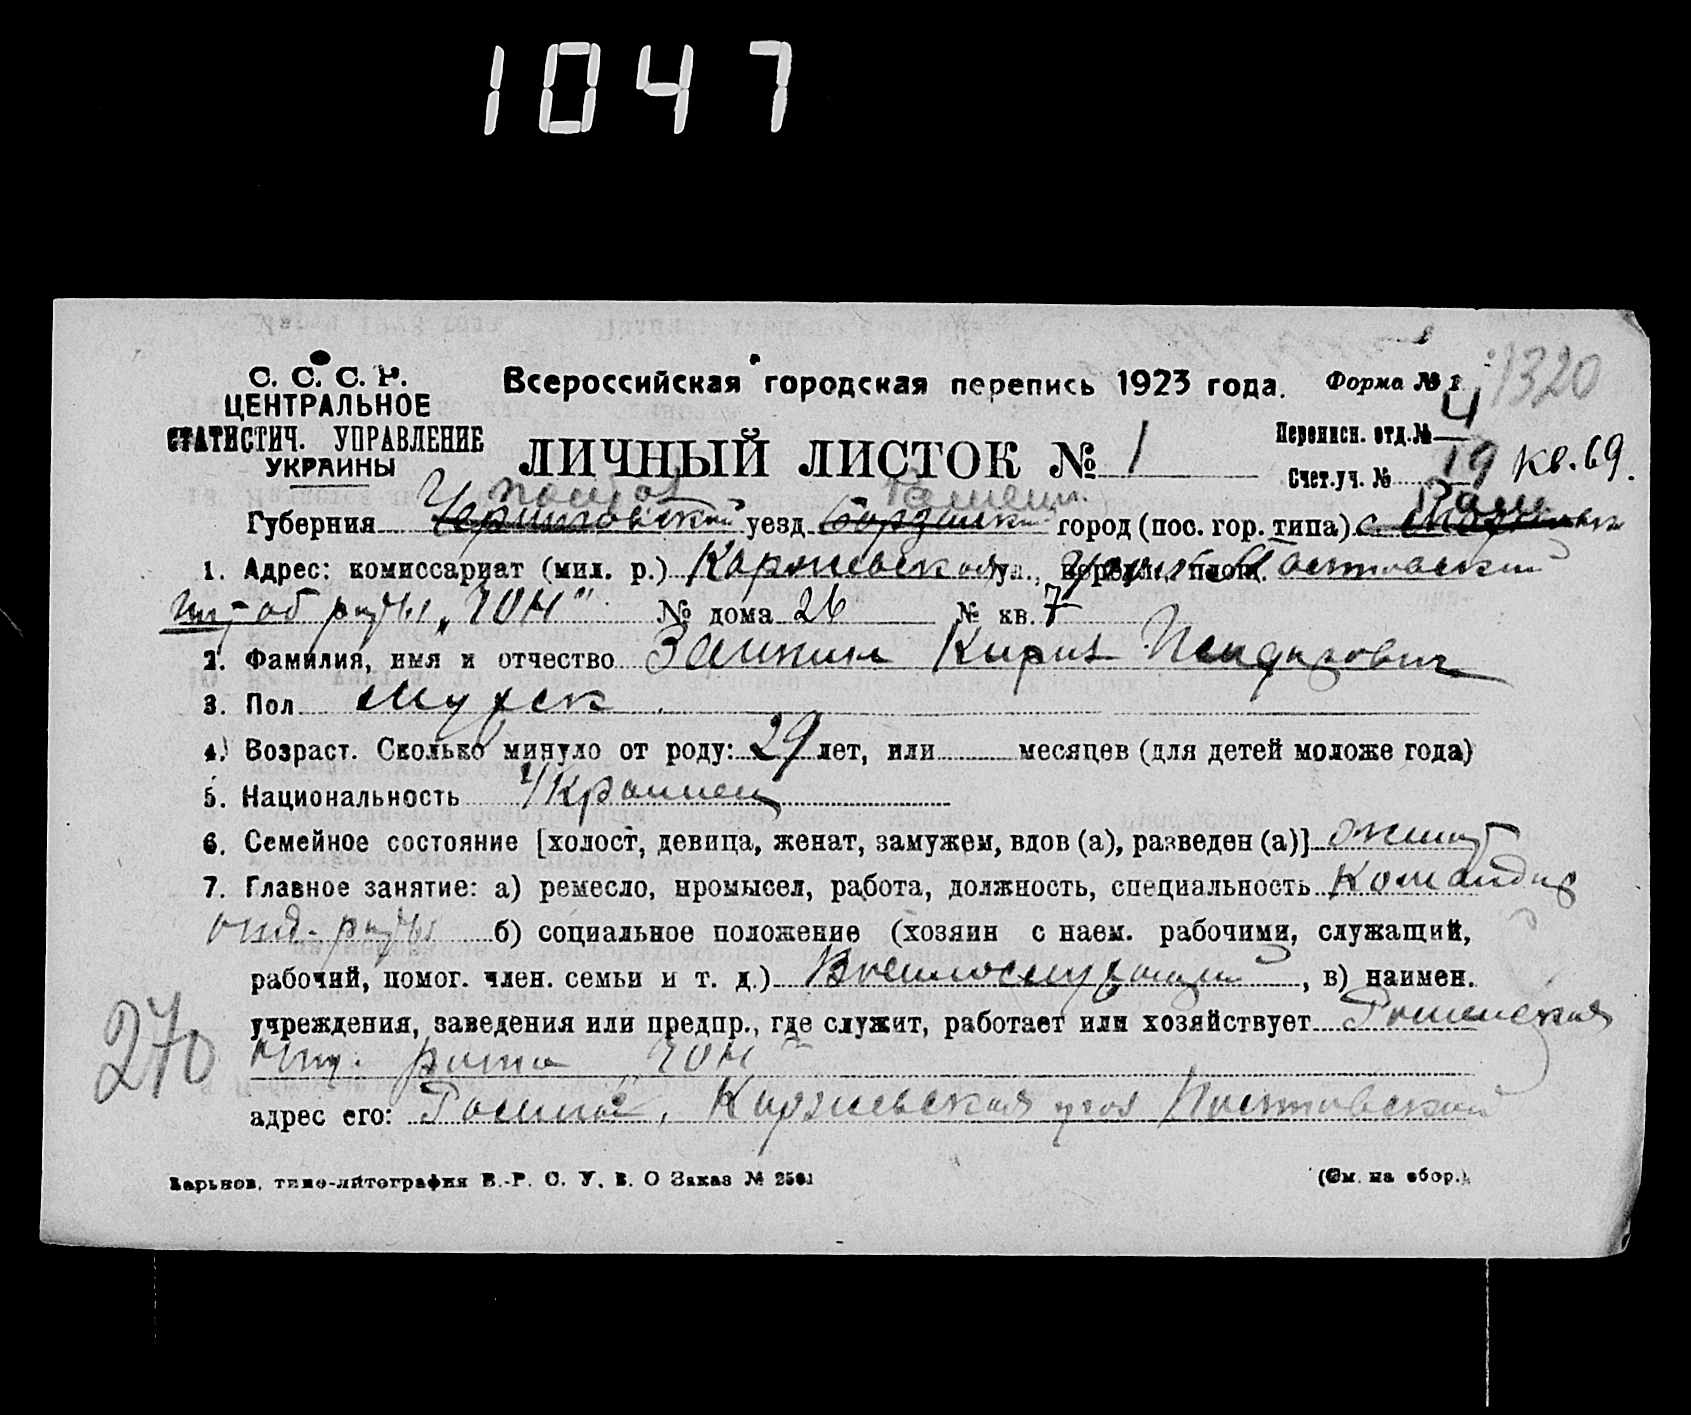 1047
С. С. С. Р.
ЦЕНТРАЛЬНОЕ
СТАТИСТИЧ. УПРАВЛЕНИЕ
УКРАИНЫ
Всероссийская городская перепись 1923 года.
Форма № 1
1320
ЛИЧНЫЙ ЛИСТОК № 1
Переписн. отд. № 4
Счет. уч. № 19 кв. 69.
Губерния Черниговский уезд Борзенский город (пос. гор. типа) с.
1. Адрес: комиссариат (мил. р.) Коржевская ул., площ.
"ЧОН" № дома 26 № кв. 7
2. Фамилия, имя и отчество Заикин
3. Пол мужск
4. Возраст. Сколько минуло от роду: 29 лет, или месяцев (для детей моложе года)
5. Национальность Украинец
6. Семейное состояние [холост, девица, женат, замужем, вдов (а), разведен (а)] женат
7. Главное занятие: а) ремесло, промысел, работа, должность, специальность Командир
б) социальное положение (хозяин с наем. рабочими, служащий,
рабочий, помог. член. семьи и т. д.) Военнослужащий, в) наимен.
учреждения, заведения или предпр., где служит, работает или хозяйствует Роменская
рота ЧОН
270
адрес его: Коржевская угол
Харьков, типо-литография В.-Р. С. У. В. О Заказ №
(См. на обор.)